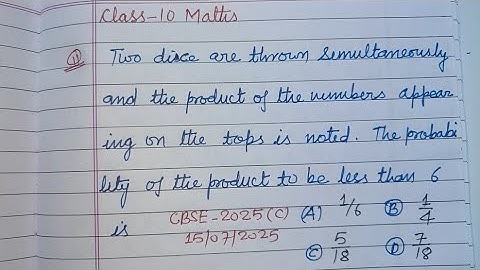 Class-10 Maths
11 Two disce are thrown simultaneously
and the product of the numbers appear
ing on the tops is noted. The probabi
lity of the product to be less than 6
is CBSE-2025(C) (A) 1/6 (B) 1/4
15/07/2025 (C) 5/18 (D) 7/18